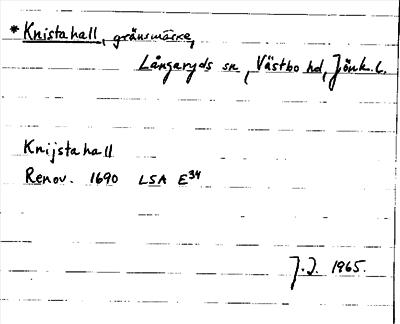 * Knistahall, gränsmärke,
Långaryds sn, Västbo hd, Jönk. l.
Knijstahall
Renov. 1690 LSA E34
J.I. 1965.